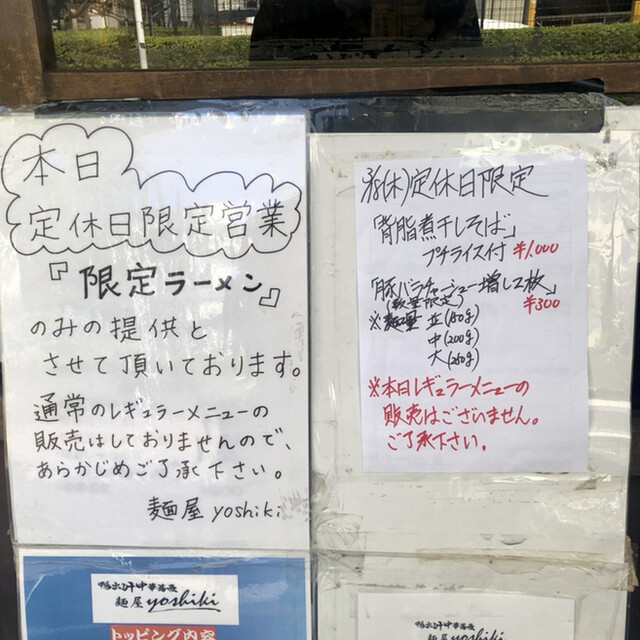 本日
定休日限定営業
『限定ラーメン』
のみの提供と
させて頂いております。
通常のレギュラーメニューの
販売はしておりませんので、
あらかじめご了承下さい。
麺屋 yoshiki
(木)定休日限定
「背脂煮干しそば」
プチライス付 ¥1,000
「豚バラチャーシュー増し2枚」
(数量限定) ¥300
※麺量 並(150g)
中(200g)
大(250g)
※本日レギュラーメニューの
販売はございません。
ご了承下さい。
鴨出汁中華蕎麦
麺屋 yoshiki
トッピング内容
鴨出汁中華蕎麦
麺屋 yoshiki